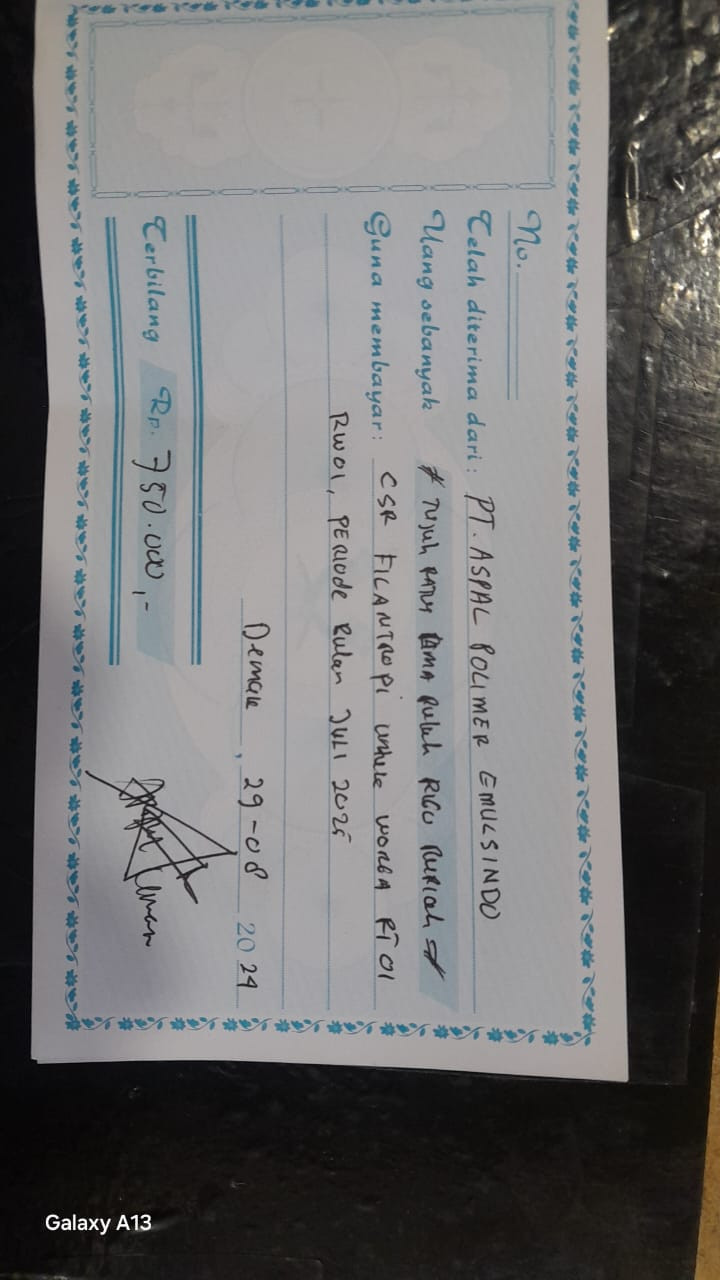 No.
Telah diterima dari : PT. ASPAL POLIMER EMULSINDO
Uang sebanyak # Tujuh RATUS LIMA Puluh RIBU RUPIAH #
Guna membayar : CSR FILANTROPI untuk WARGA RT 01
RW 01, PERIODE Bulan JULI 2025
Demak, 29-08 2024
Terbilang Rp. 750.000,-
Galaxy A13